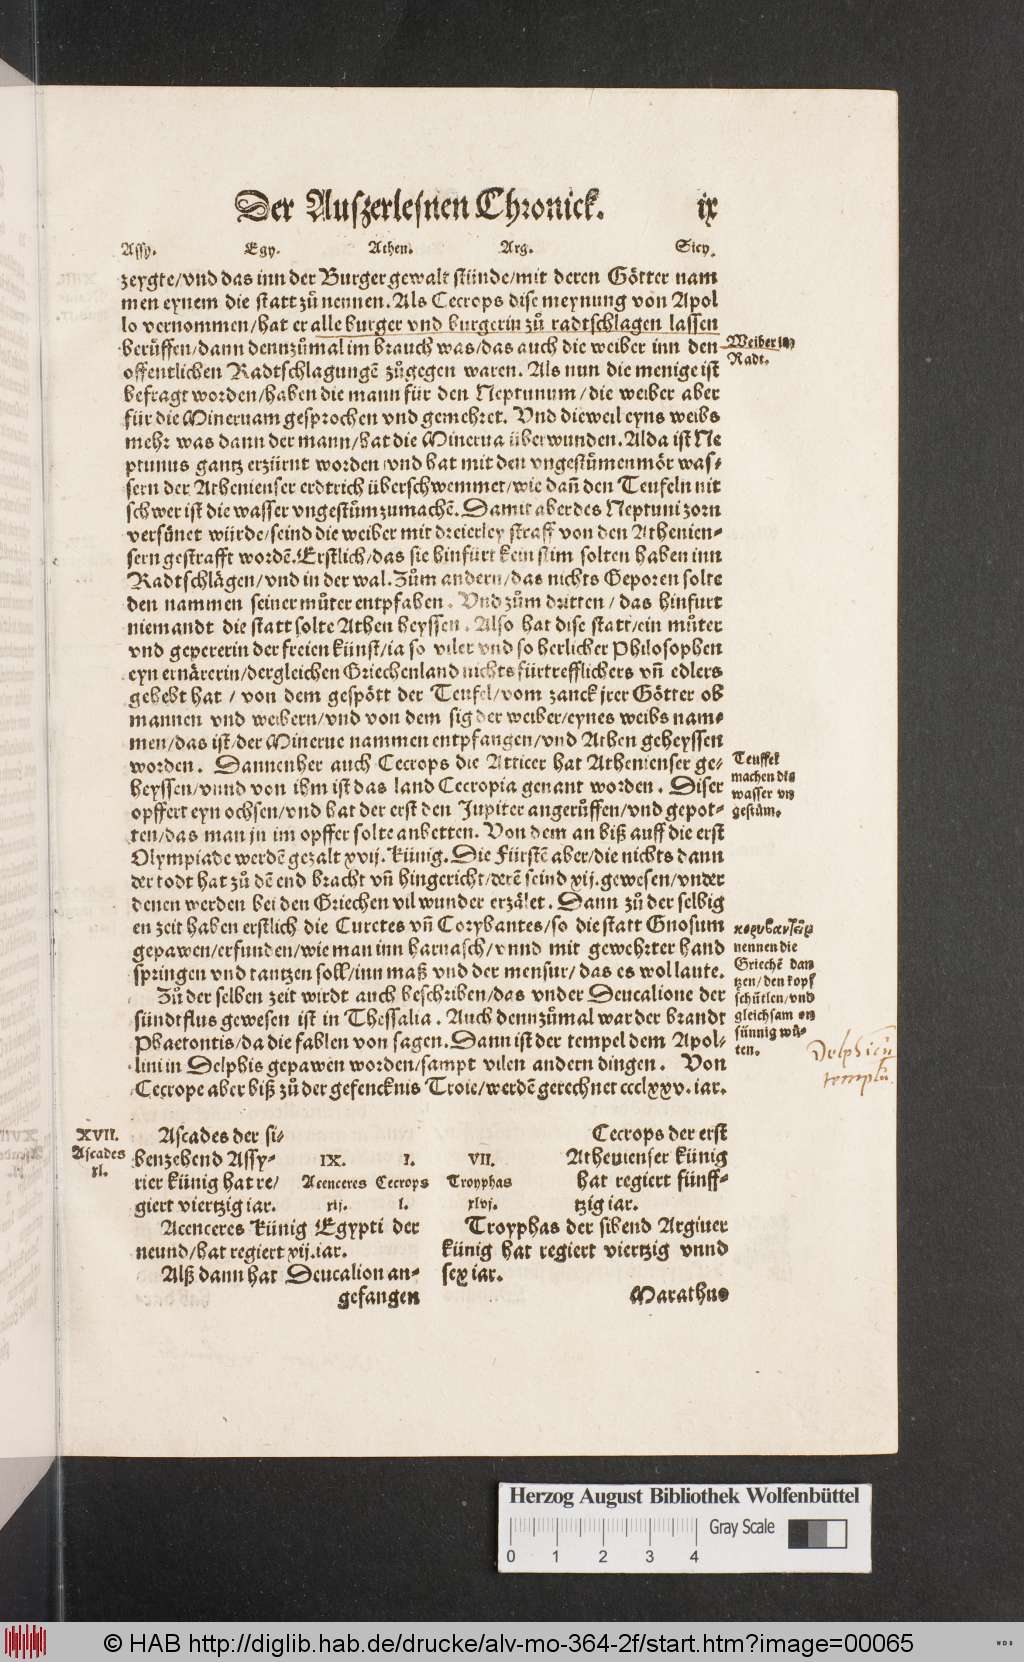 Der Auszerlesnen Chronick. ix
Assy. Egy. Athen. Arg. Sicy.
zeygte/vnd das inn der Burger gewalt stünde/mit deren Götter nam
men eynem die statt zů nennen. Als Cecrops dise meynung von Apol
lo vernommen/hat er alle burger vnd burgerin zů radtschlagen lassen
berůffen/dann dennzůmal im brauch was/das auch die weiber inn den
offentlichen Radtschlagungē zůgegen waren. Als nun die menige ist
befragt worden/haben die mann für den Neptunum/die weiber aber
für die Mineruam gesprochen vnd gemehret. Vnd dieweil eyns weibs
mehr was dann der mann/hat die Minerua überwunden. Alda ist Ne
ptunus gantz erzürnt worden vnd hat mit den vngestůmen mör was-
sern der Athenienser erdtrich überschwemmet/wie dañ den Teufeln nit
schwer ist die wasser vngestům zumachē. Damit aber des Neptuni zorn
versůnet würde/seind die weiber mit dreierley straff von den Athenien-
sern gestrafft wordē. Erstlich/das sie hinfürt kein stim solten haben inn
Radtschlägen/vnd in der wal. Zům andern/das nichts Geporen solte
den nammen seiner můter entpfahen. Vnd zům dritten/das hinfurt
niemandt die statt solte Athen heyssen. Also hat dise statt/ein můter
vnd gepererin der freien künst/ia so viler vnd so herlicher Philosophen
eyn ernärerin/dergleichen Griechenland nichts fürtrefflichers vñ edlers
gehebt hat/von dem gespött der Teufel/vom zanck jrer Götter ob
mannen vnd weibern/vnd von dem sig der weiber/eynes weibs nam-
men/das ist/der Minerue nammen entpfangen/vnd Athen geheyssen
worden. Dannenher auch Cecrops die Atticer hat Athenienser ge-
heyssen/vnnd von ihm ist das land Cecropia genant worden. Diser
opffert eyn ochsen/vnd hat der erst den Jupiter angerůffen/vnd gepot-
ten/das man jn im opffer solte anbetten. Von dem an biß auff die erst
Olympiade werdē gezalt xvij. künig. Die Fürstē aber/die nichts dann
der todt hat zů dē end bracht vñ hingericht/derē seind xij. gewesen/vnder
denen werden bei den Griechen vil wunder erzälet. Dann zů der selbig
en zeit haben erstlich die Curetes vñ Corybantes/so die statt Gnosum
gepawen/erfunden/wie man inn harnasch/vnnd mit gewehrter hand
springen vnd tantzen soll/inn maß vnd der mensur/das es wol laute.
Zů der selben zeit wirdt auch beschriben/das vnder Deucalione der
sündtflus gewesen ist in Thessalia. Auch dennzůmal war der brandt
Phaetontis/da die fablen von sagen. Dann ist der tempel dem Apol-
lini in Delphis gepawen worden/sampt vilen andern dingen. Von
Cecrope aber biß zů der gefencknis Troie/werdē gerechnet ccclxxv. iar.
Weiber im
Radt.
Teuffel
machen die
wasser vn
gestům.
κορυβαντᾶς
nennen die
Griechē dan
tzen/den kopf
schütlen/vnd
gleichsam vn
sünnig wü-
ten.
Delphicū
templū.
XVII.
Ascades
xl.
Ascades der si-
benzehend Assy-
rier künig hat re/
giert viertzig iar.
IX. I. VII.
Acenceres Cecrops Troyphas
xij. l. xlvj.
Cecrops der erst
Athenienser künig
hat regiert fünff-
tzig iar.
Acenceres künig Egypti der
neund/hat regiert xij. iar.
Alß dann hat Deucalion an-
gefangen
Troyphas der sibend Argiuer
künig hat regiert viertzig vnnd
sex iar.
Marathus
Herzog August Bibliothek Wolfenbüttel
0 1 2 3 4 Gray Scale
© HAB http://diglib.hab.de/drucke/alv-mo-364-2f/start.htm?image=00065